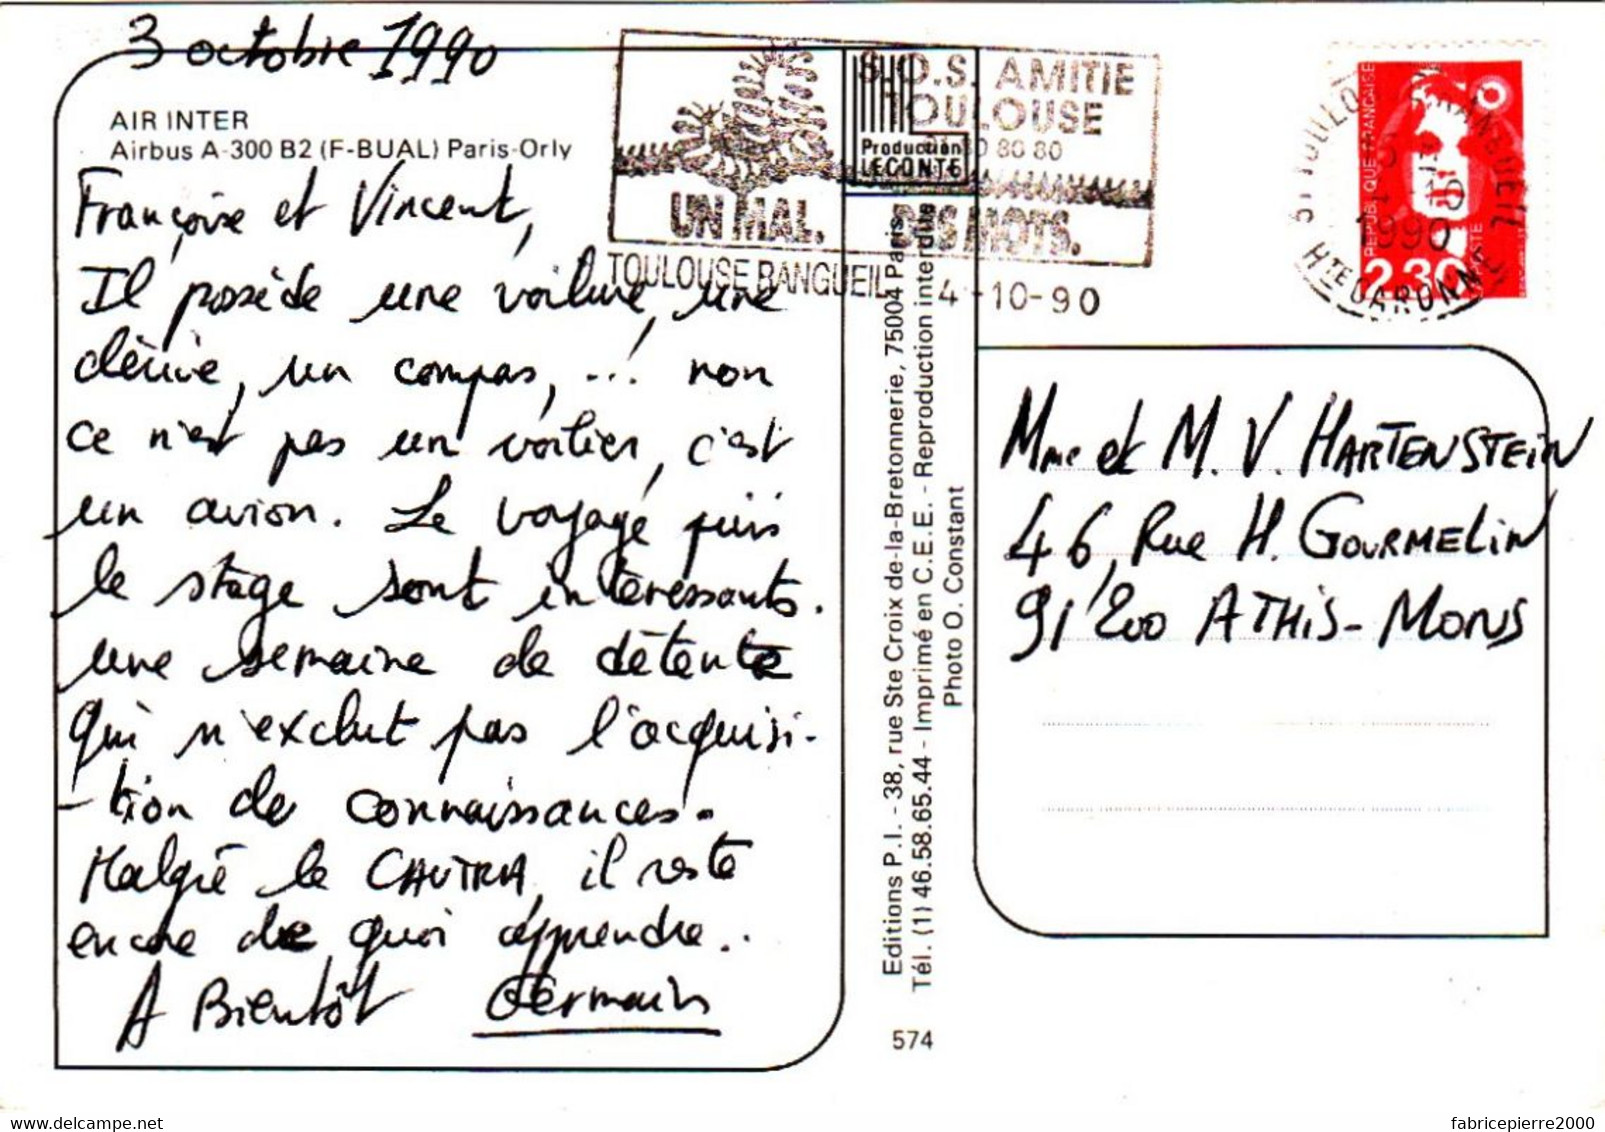 3 octobre 1990
AIR INTER
Airbus A-300 B2 (F-BUAL) Paris-Orly
Françoise et Vincent,
Il possède une voilure, une
dérive, un compas, ... non
ce n'est pas un voilier, c'est
un avion. Le voyage puis
le stage sont intéressants.
une semaine de détente
qui n'exclut pas l'acquisi-
-tion de connaissances.
Malgré le CAUTRA, il reste
encore de quoi apprendre..
A Bientôt Germain
S.O.S. AMITIE
TOULOUSE
80 80 80
UN MAL. DES MOTS.
TOULOUSE RANGUEIL
4-10-90
Production
LECONTE
Editions P.I. - 38, rue Ste Croix de-la-Bretonnerie, 75004 Paris
Tél. (1) 46.58.65.44 - Imprimé en C.E.E. - Reproduction interdite
Photo O. Constant
574
31 TOULOUSE RANGUEIL
1990
HTE GARONNE
REPUBLIQUE FRANÇAISE
2,30
Mme et M. V. HARTENSTEIN
46, Rue H. GOURMELIN
91200 ATHIS-MONS
fabricepierre2000